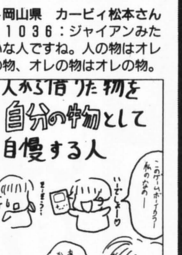 岡山県　カービィ松本さん
1036：ジャイアンみた
な人ですね。人の物はオレ
の物、オレの物はオレの物。
人から借りた物を
自分の物として
自慢する人
いいでしょー♡
このゲームボーイカラー
私のなのー